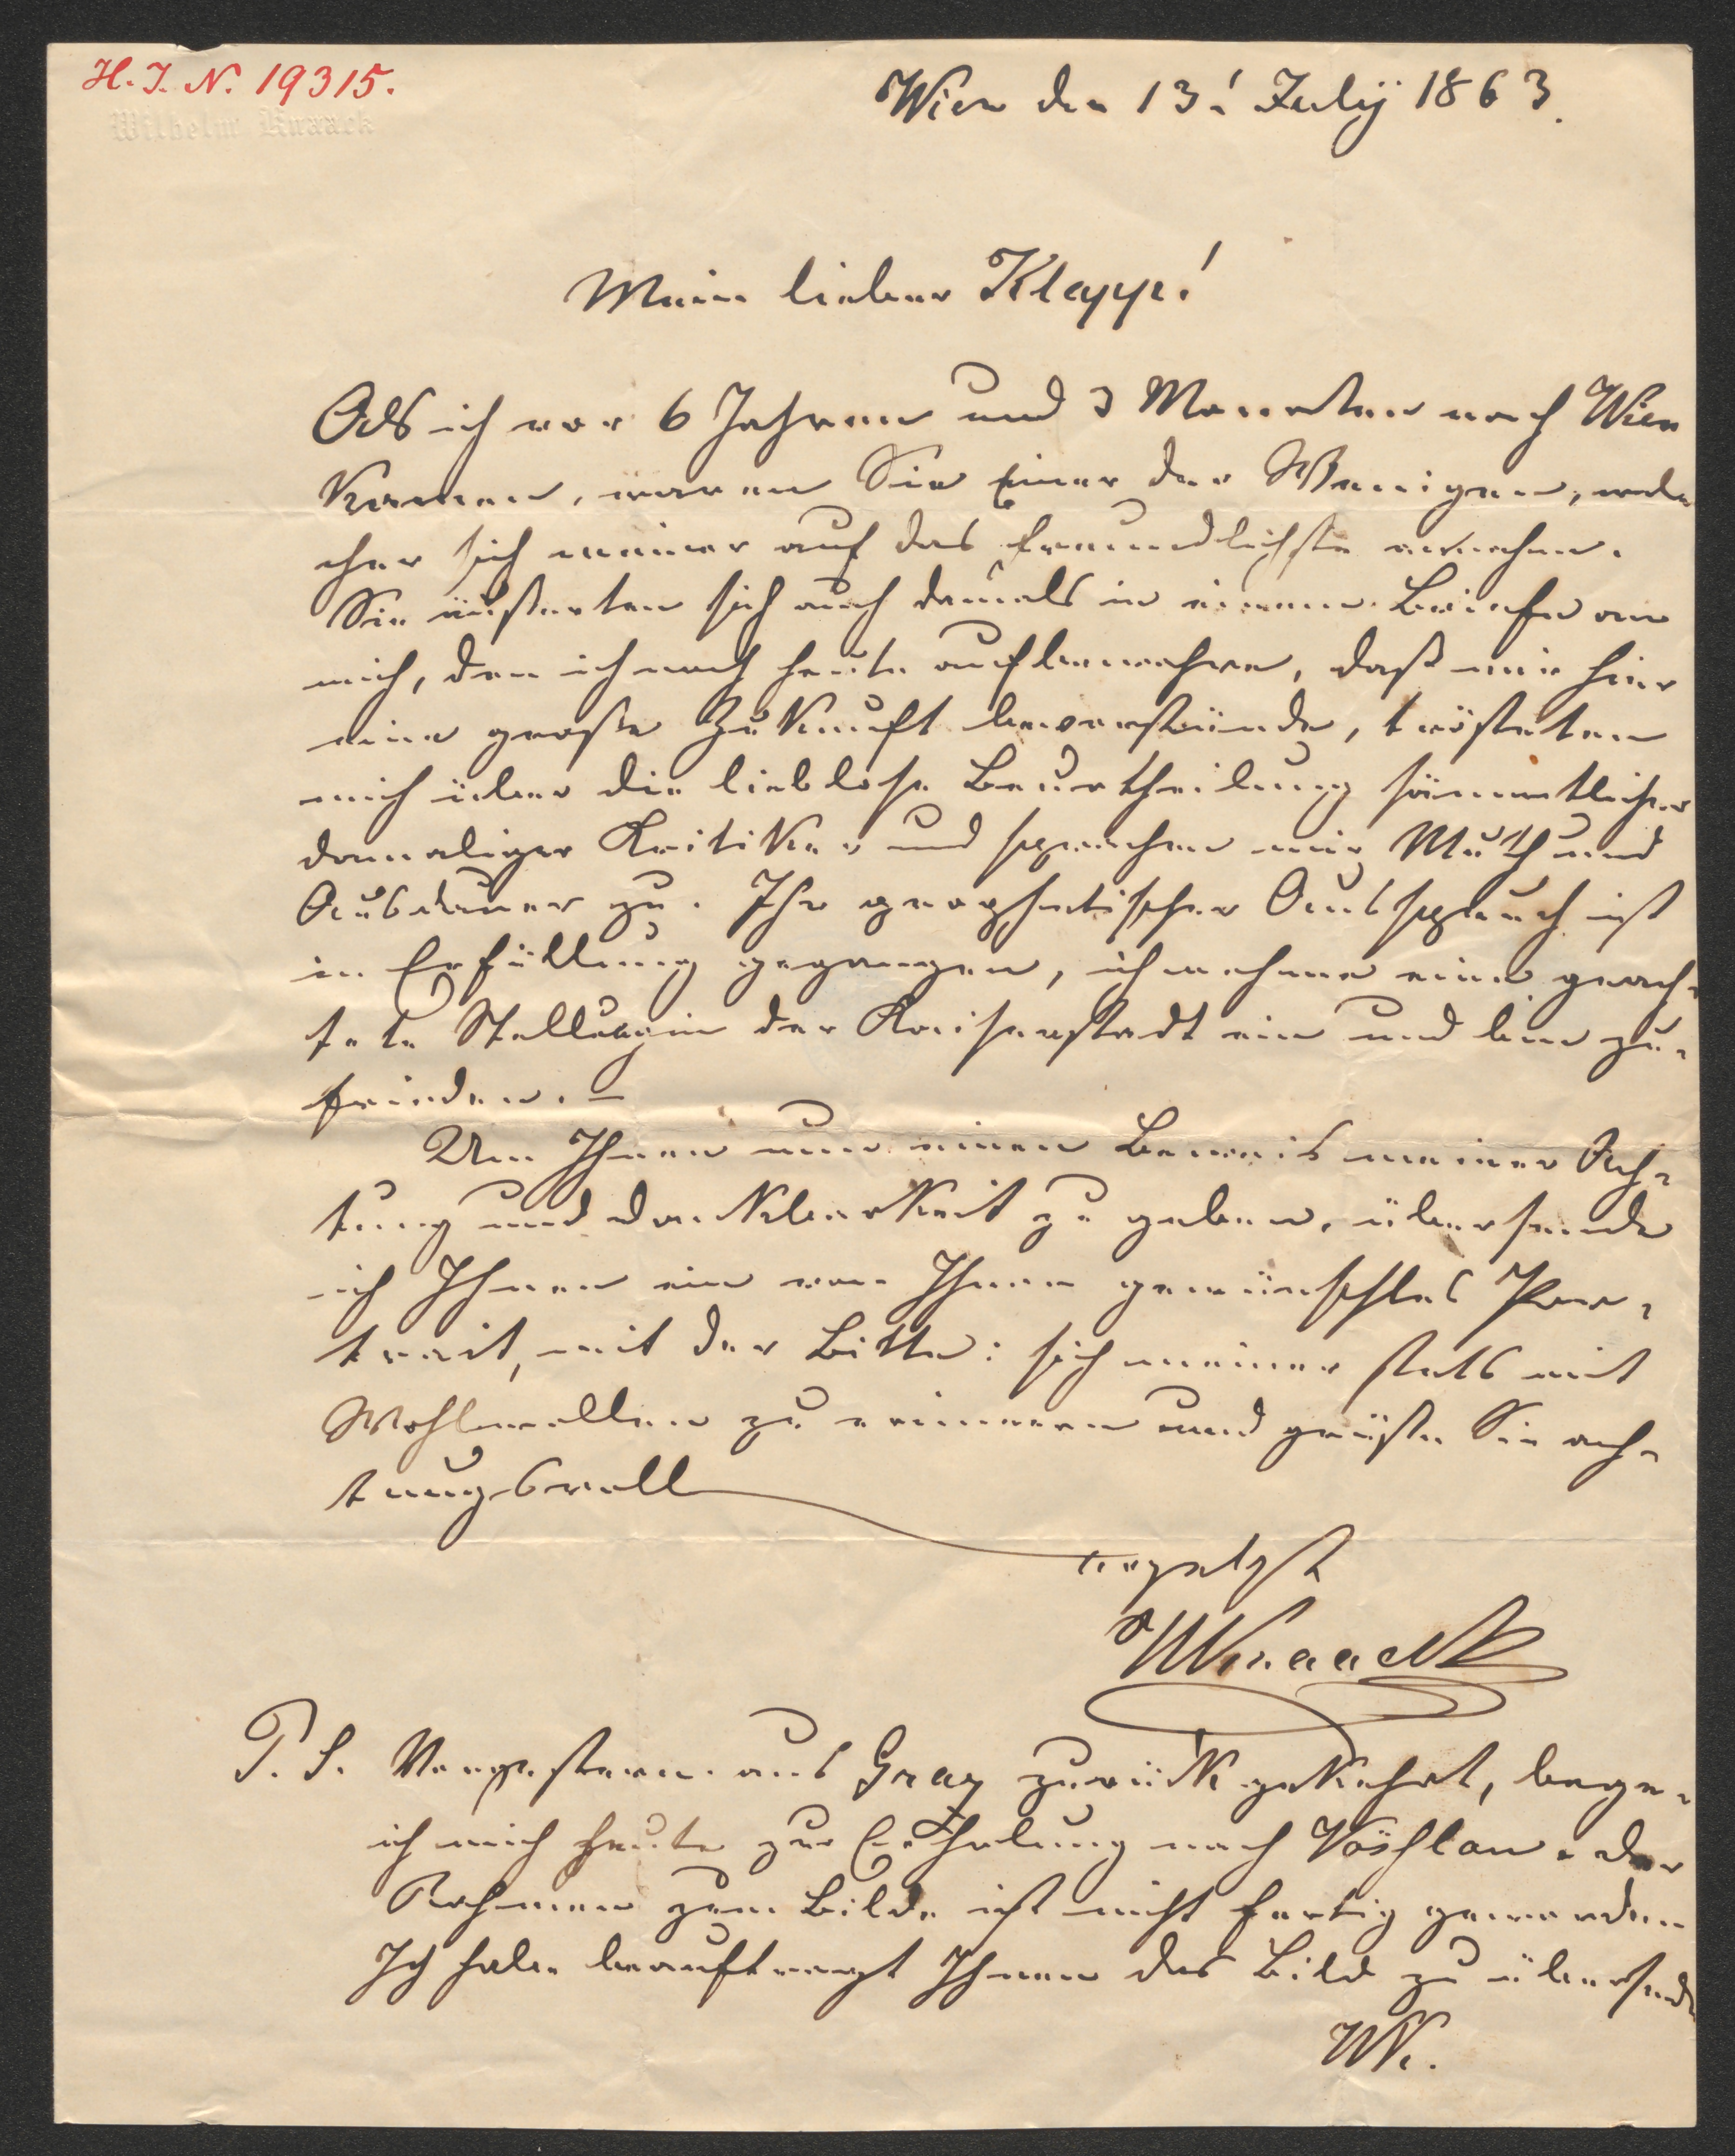 H. I. N. 19315.
Wilhelm Knaack
Wien den 13! Julÿ 1863.
Mein lieber Klapp!
Als ich vor 6 Jahren und 3 Monaten nach Wien
kamen, waren Sie Einer der Wenigen, wel
cher sich meiner auf das freundlichste annahm.
Sie äußerten sich auch damals in einem Briefe an
mich, den ich noch heute aufbewahre, daß mir hier
eine große Zukunft bevorstünde, trösteten
mich über die lieblose Beurtheilung sämmtlicher
damaliger Kritiker und sprachen mir Muth und
Ausdauer zu. Ihr prophetischer Ausspruch ist
in Erfüllung gegangen, ich nehme eine geach-
tete Stellung in der Kaiserstadt ein und bin zu-
frieden. –
Um Ihnen nun einen Beweis meiner Ach-
tung und Dankbarkeit zu geben, übersende
ich Ihnen ein von Ihnen gewünschtes Por-
trait, mit der Bitte: sich meiner stets mit
Wohlwollen zu erinnern und grüße Sie ach-
tungsvoll
ergebst
WKnaack
P. S. Vorgestern aus Graz zurückgekehrt, bege-
ich mich heute zur Erholung nach Vöslau. Der
Rahmen zum Bilde ist nicht fertig geworden
Ich habe beauftragt Ihnen das Bild zu übersenden
WK.